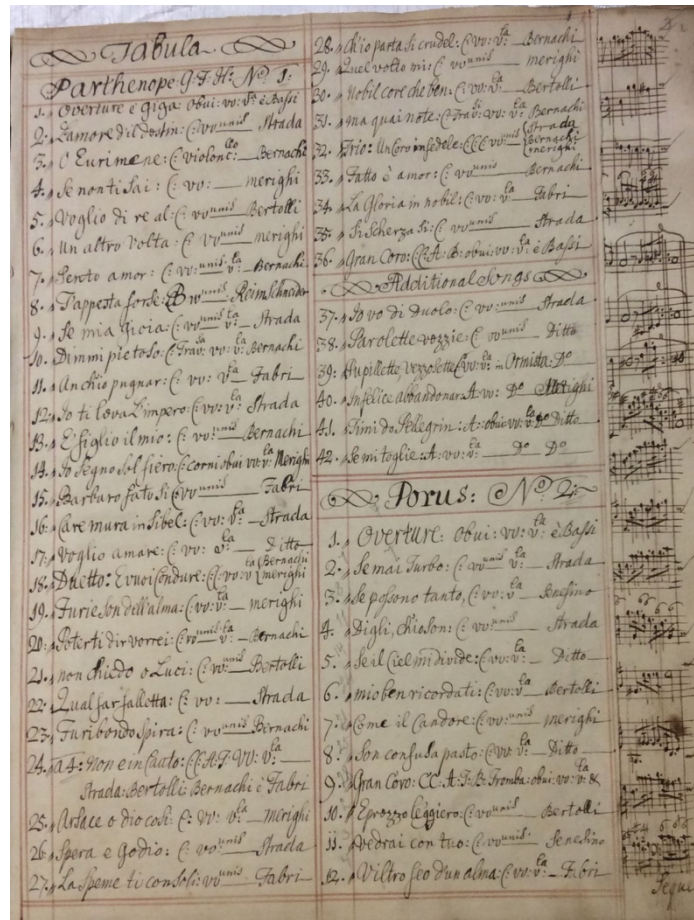 Tabula
Parthenope. G. F. H: No. 1:
1. Overture è Giga: obui: vv: v:la è Bassi
2. L'amor ed il destin: C: vv unis Strada
3. O Eurimene: C: violonc:lo Bernachi
4. Se non ti sai: C: vv: merighi
5. Voglio di re al: C: vv unis Bertolli
6. Un altro Volta: C: vv unis merighi
7. Sento amor: C: vv: unis: v:la Bernachi
8. T'appresta forse: B vv unis Reimschneider
9. Se mia Gioia: C: vv unis v:la Strada
10. Dimmi pietoso: C: Trav:sa vv: v:la Bernachi
11. Anch'io pugnar: C: vv: v:la Fabri
12. Io ti leva L'impero: C: vv: v:la Strada
13. E figlio il mio: C: vv: unis Bernachi
14. Io Segno Sol fiero: C: corni obui vv: v:la Merighi
15. Barbaro fato Si: C: vv unis Fabri
16. Care mura in Si bel: C: vv: v:la Strada
17. Voglio amare: C: vv: v:la Ditto
18. Duetto: E vuoi Con dure: CC: vv: v:la Bernachi merighi
19. Furie Son dell'alma: C: vv: v:la merighi
20. Poterti dir vorrei: C: vv: unis: v:la Bernachi
21. non chiedo o Luci: C: vv: unis Bertolli
22. Qual farfalletta: C: vv: Strada
23. Furibondo Spira: C: vv unis Bernachi
24. a 4: non è incauto: CC: A: T: vv: v:la
Strada: Bertolli Bernachi è Fabri
25. Arsace o dio così: C: vv: v:la merighi
26. Spera e Godi o: C: vv: unis Strada
27. La Speme ti consoli: vv unis Fabri
28. Ch'io parta Si crudel: C: vv: v:la Bernachi
29. Quel volto mi: C: vv unis merighi
30. Nobil core che ben: C: vv: v:la Bertolli
31. ma quai note: C: Trav:si vv: v:la Bernachi
32. Trio: Un Cor infedele: CCC vv unis Strada Bernachi merighi
33. Fatto è amor: C: vv: v:la Bernachi
34. La Gloria in nobil: C: vv: v:la Fabri
35. Si Scherza Si: C: vv: unis Strada
36. Gran Coro: CC: A: B: obui: vv: v:la è Bassi
Additional Songs
37. Io vo di Duolo: C: vv unis Strada
38. Parolette vezzie: C: vv unis Ditto
39: Pupillette, vezzosette C: vv: v:la in Ormisda. Do
40. Infelice abbandonar: A: vv: Do Merighi
41. Timido Pellegrin: A: obui: vv: v:la Do Ditto
42. Se mi toglie: A: vv: v:la Do Do
Porus: No. 2:
1. Overture: obui: vv: v:la è Bassi
2. Se mai Turbo: C: vv unis v:la Strada
3. Se possono tanto, C: vv: v:la Senesino
4. Digli, Ch'io Son: C: vv: unis Strada
5. Se il Ciel mi divide: C: vv: v:la Ditto
6. mio ben ricordati: C: vv: v:la Bertolli
7. Come il Candore: C: vv: unis merighi
8. Son confusa pasto: C: vv: v:la Ditto
9. Gran Coro: CC: A: T: B: Tromba: obui: vo: v:la &
10. E prezzo Leggiero: C: vv unis Bertolli
11. Vedrai con tuo: C: vv: unis: Senesino
12. Vil trofeo d'un alma: C: vv: v:la Fabri
Seque